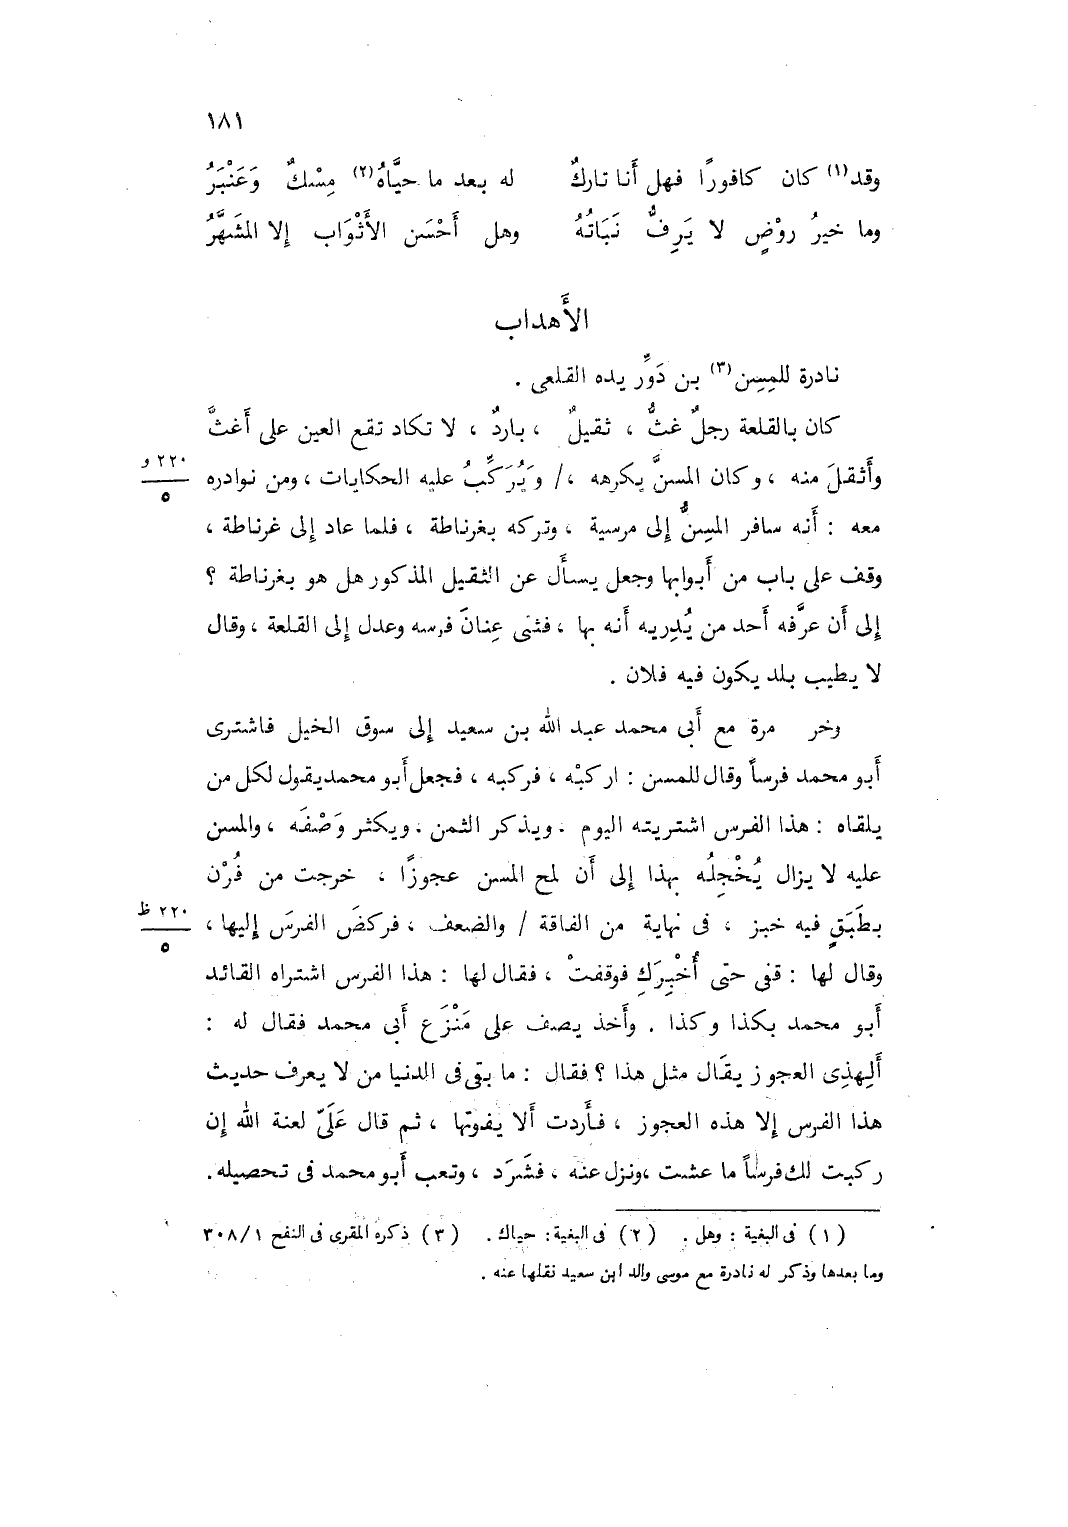 ١٨١
وقد(١) كان كافورًا فهل أَنا تاركٌ له بعد ما حيَّاهُ(٢) مِسْكٌ وَعَنْبَرُ
وما خيرُ روْضٍ لا يَرِفُّ نَبَاتُهُ وهل أَحْسَن الأَثْوَاب إلا المشَهَّرُ
الأَهداب
نادرة للمِسِن(٣) بن دَوِّر يده القلعى .
كان بالقلعة رجلٌ غثٌّ ، ثقيلٌ ، باردٌ ، لا تكاد تقع العين على أَغثَّ
وأَثقلَ منه ، وكان المسنُّ يكرهه ،/ وَيُرَكِّبُ عليه الحكايات ، ومن نوادره
٢٢٠ و
٥
معه : أَنه سافر المسِنُّ إلى مرسية ، وتركه بغرناطة ، فلما عاد إلى غرناطة ،
وقف على باب من أَبوابها وجعل يسأَل عن الثقيل المذكور هل هو بغرناطة ؟
إلى أَن عرَّفه أَحد من يُدرِيه أَنه بها ، فثنى عِنانَ فرسه وعدل إلى القلعة ، وقال
لا يطيب بلد يكون فيه فلان .
وخر مرة مع أَبى محمد عبد الله بن سعيد إلى سوق الخيل فاشترى
أَبو محمد فرساً وقال للمسن : اركبْه ، فركبه ، فجعل أَبو محمد يقول لكل من
يلقاه : هذا الفرس اشتريته اليوم . ويذكر الثمن . ويكثر وَصْفَه ، والمسن
عليه لا يزال يُخْجِلُه بهذا إلى أَن لمح المسن عجوزًا ، خرجت من فُرْن
بطَبَقٍ فيه خبز ، فى نهاية من الفاقة / والضعف ، فركضَ الفرسَ إليها ،
٢٢٠ ظ
٥
وقال لها : قفى حتى أُخْبِرَكِ فوقفتْ ، فقال لها : هذا الفرس اشتراه القائد
أَبو محمد بكذا وكذا . وأَخذ يصف على مَنْزَع أَبى محمد فقال له :
أَلِهذِى العجوز يقَال مثل هذا ؟ فقال : ما بقى فى الدنيا من لا يعرف حديث
هذا الفرس إلا هذه العجوز ، فأَردت أَلا يفوتها ، ثم قال عَلَىّ لعنة الله إن
ركبت لك فرساً ما عشت ،ونزل عنه ، فشَرَد ، وتعب أَبو محمد فى تحصيله.
(١) فى البغية : وهل . (٢) فى البغية: حياك . (٣) ذكره المقرى فى النفح ٣٠٨/١
وما بعدها وذكر له نادرة مع موسى والد ابن سعيد نقلها عنه .